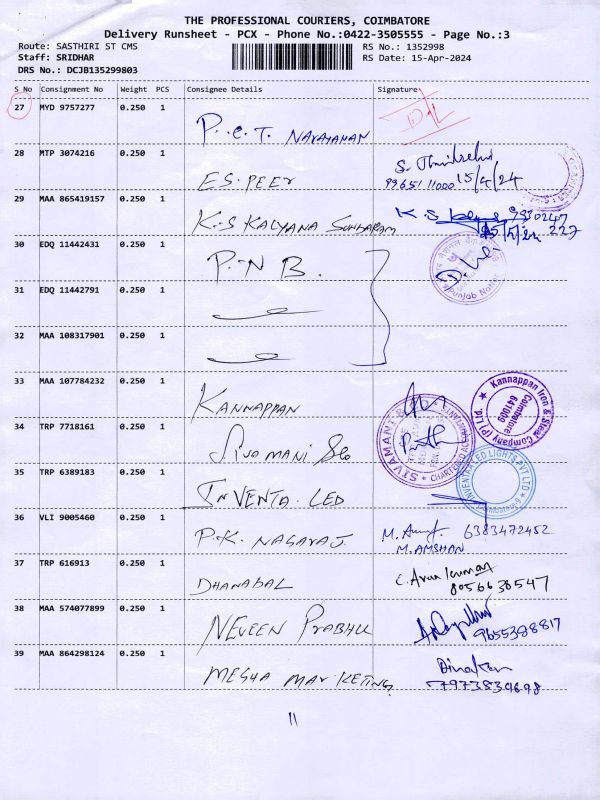 THE PROFESSIONAL COURIERS, COIMBATORE
Delivery Runsheet - PCX - Phone No.:0422-3505555 - Page No.:3
Route: SASTHIRI ST CMS
RS No.: 1352998
Staff: SRIDHAR
RS Date: 15-Apr-2024
DRS No.: DCJB135299803
S No Consignment No Weight PCS Consignee Details Signature
27 MYD 9757277 0.250 1
P.C.T. NARAYANAN
28 MTP 3074216 0.250 1
E.S. PEER
93651 11000 15/4/24
29 MAA 865419157 0.250 1
K.S KALYANA SUNDARAM
K S
227
30 EDQ 11442431 0.250 1
P.N B.
Punjab Nation
31 EDQ 11442791 0.250 1
32 MAA 108317901 0.250 1
33 MAA 107784232 0.250 1
KANNAPPAN
Kannappan Iron & Steel Company (P) Ltd.
Coimbatore
641009
34 TRP 7718161 0.250 1
Sivamani &Co
SIVAMANI &
CHARTERED AC
35 TRP 6389183 0.250 1
INVENTA LED
LIGHTS PVT LTD
Coimbatore-9
36 VLI 9005460 0.250 1
P.K. NAGARAJ
M. 6383472452
M. AMSHAN
37 TRP 616913 0.250 1
DHANABAL
C. Arun kumar
8056638547
38 MAA 574077899 0.250 1
NEVEEN PRABHU
9655388817
39 MAA 864298124 0.250 1
MEGHA MARKETING
Dinakaran
7973839698
11